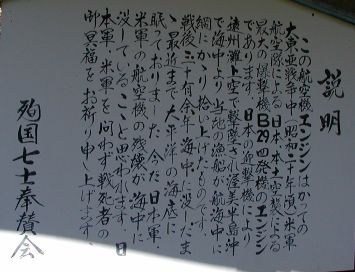 説明
この航空機エンジンはかての
大東亜戦争中(昭和二十年頃)米軍
航空隊による日本本土空襲による
最大の爆撃機B29四発機のエンジン
であります。日本の迎撃機により
遠州灘上空で撃墜され渥美半島沖
で海中より当地の漁船が航海中に
網にかかり拾い上げたものです。
戦後三十有余年海中に没したま
ゝ最近まで太平洋の海底に
眠っておりました今だ日本軍、
米軍の航空機の残燥が海中に
没していることと思われます。日
本軍、米軍を問わず戦死者の
御冥福をお祈り申し上げます、
殉国七士奉賛会